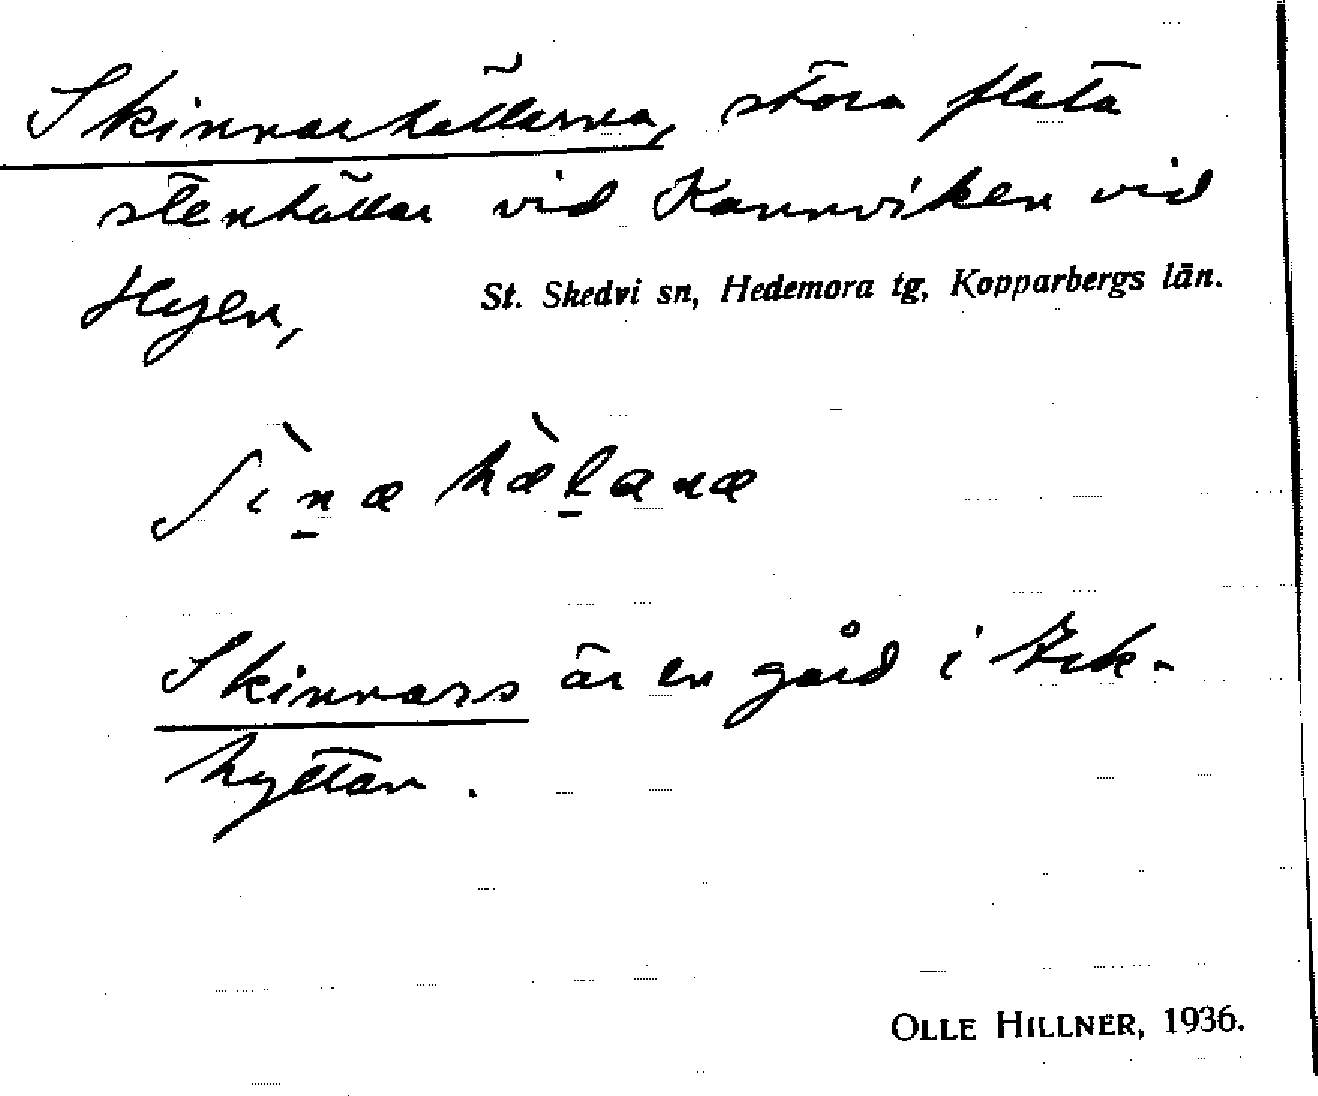 Skinnarhällarna, stora flata
stenhällar vid Kannviken vid
Hyen,
St. Skedvi sn, Hedemora tg, Kopparbergs län.
Skinnars är en gård i
hyttan.
OLLE HILLNER, 1936.